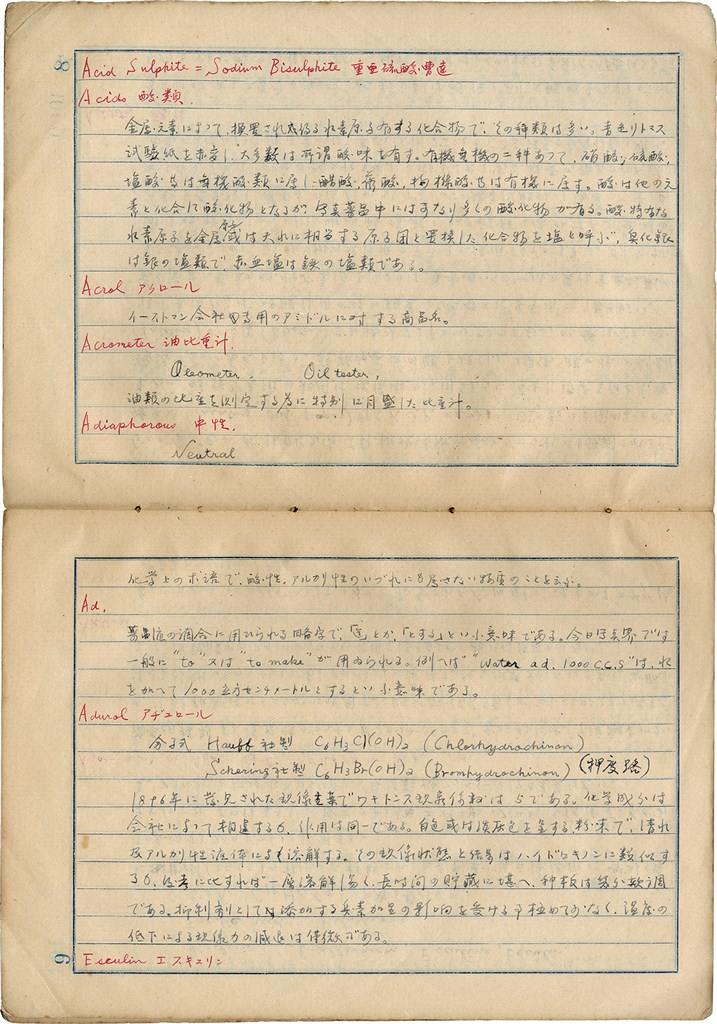 8
Acid Sulphite = Sodium Bisulphite 重亜硫酸曹達
Acids 酸類.
金属元素によって置換され得る水素原子を有する化合物で、その種類は多い。青色リトマス
試験紙を赤変し、大多数は所謂酸味を有す。有機無機の二種あって、硝酸、硫酸、
塩酸等は無機酸類に属し、醋酸、蓚酸、枸櫞酸等は有機に属す。酸は他の元
素と化合して酸化物となるが、写真薬品中にはかなり多くの酸化物がある。酸の
水素原子を金属或は之れに相当する原子団と置換した化合物を塩と呼ぶ、臭化銀
は銀の塩類で、赤血塩は鉄の塩類である。
Acrol アクロール
イーストマン会社専用のアミドルに対する商品名。
Acrometer 油比重計.
Oleometer, Oil tester,
油類の比重を測定する為に特別に目盛した比重計。
Adiaphorous 中性.
Neutral
化学上の術語で、酸性、アルカリ性のいづれにも属さない物質のことを云ふ。
Ad.
薬剤の調合に用ひられる略字で、「迄」とか、「とする」といふ意味である。今日写真界では
一般に "to" 又は "to make" が用ゐられる。例へば "Water ad. 1000 C.C.S" は、水
を加へて 1000 立方センチメートルとするといふ意味である。
Adurol アヂュロール
分子式 Hauff 社製 C6H3Cl(OH)2 (Chlorhydrochinon)
Schering 社製 C6H3Br(OH)2 (Bromhydrochinon)
1896年に発見された現像主薬でワトキンス現像係数は 5 である。化学成分は
会社によって相違するも、作用は同一である。白色或は淡灰色を呈する粉末で、
及アルカリ性液体によく溶解する。その現像状態と結果はハイドロキノンに類似す
るも、後者に比すれば一層溶解し易く、長時間の貯蔵に堪へ、種板は軟調
である。抑制剤として添加する臭素加里の影響を受ける事極めて少なく、温度の
低下による現像力の減退は僅微である。
9
Esculin エスキュリン